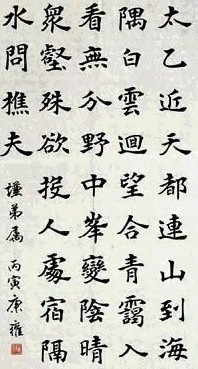 太乙近天都連山到海
隅白雲迴望合青靄入
看無分野中峯變陰晴
衆壑殊欲投人處宿隔
水問樵夫
弟属 丙寅康雍